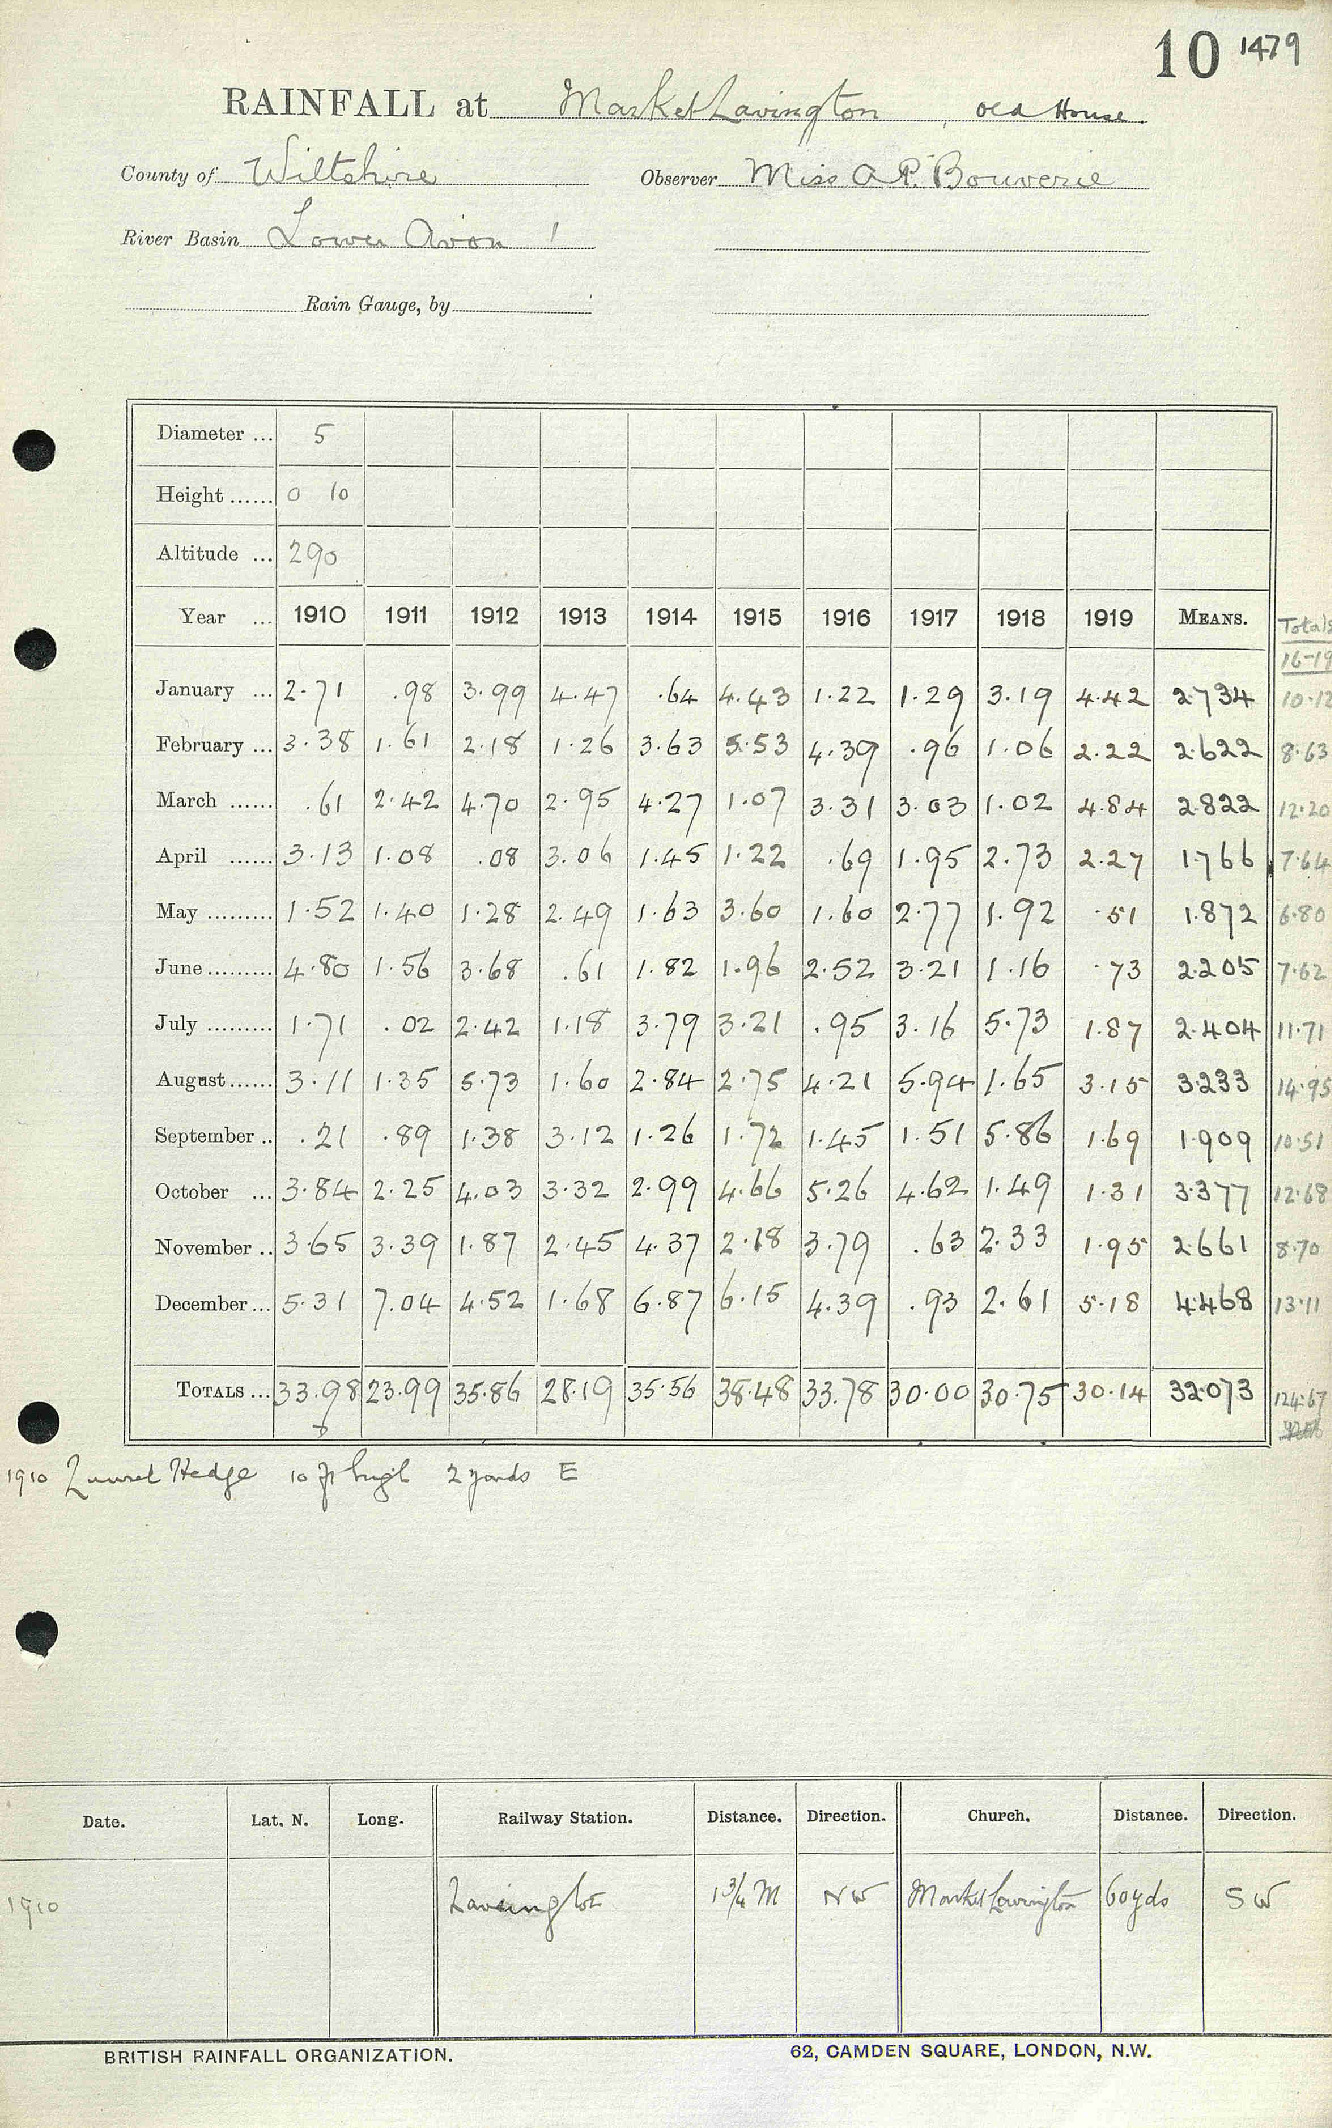 10 1479
RAINFALL at Market Lavington, Old House.
County of Wiltshire Observer Miss A P. Bouverie
River Basin Lower Avon 1
Rain Gauge, by
Diameter ... 5
Height ...... 0 10
Altitude ... 290
Year ... 1910 1911 1912 1913 1914 1915 1916 1917 1918 1919 MEANS. Totals
16-19
January ... 2.71 .98 3.99 4.47 .64 4.43 1.22 1.29 3.19 4.42 2.734 10.12
February ... 3.38 1.61 2.18 1.26 3.63 5.53 4.39 .96 1.06 2.22 2.622 8.63
March ...... .61 2.42 4.70 2.95 4.27 1.07 3.31 3.03 1.02 4.84 2.822 12.20
April ...... 3.13 1.08 .08 3.06 1.45 1.22 .69 1.95 2.73 2.27 1.766 7.64
May ......... 1.52 1.40 1.28 2.49 1.63 3.60 1.60 2.77 1.92 .51 1.872 6.80
June ......... 4.80 1.56 3.68 .61 1.82 1.96 2.52 3.21 1.16 .73 2.205 7.62
July ......... 1.71 .02 2.42 1.18 3.79 3.21 .95 3.16 5.73 1.87 2.404 11.71
August ...... 3.11 1.35 5.73 1.60 2.84 2.75 4.21 5.94 1.65 3.15 3.233 14.95
September .. .21 .89 1.38 3.12 1.26 1.72 1.45 1.51 5.86 1.69 1.909 10.51
October ... 3.84 2.25 4.03 3.32 2.99 4.66 5.26 4.62 1.49 1.31 3.377 12.68
November .. 3.65 3.39 1.87 2.45 4.37 2.18 3.79 .63 2.33 1.95 2.661 8.70
December ... 5.31 7.04 4.52 1.68 6.87 6.15 4.39 .93 2.61 5.18 4.468 13.11
TOTALS ... 33.98 23.99 35.86 28.19 35.56 38.48 33.78 30.00 30.75 30.14 32.073 124.67
1910 Laurel Hedge 10 ft high 2 yards E
Date. Lat. N. Long. Railway Station. Distance. Direction. Church. Distance. Direction.
1910 Lavington 1 3/4 M NW Market Lavington 60yds SW
BRITISH RAINFALL ORGANIZATION. 62, CAMDEN SQUARE, LONDON, N.W.